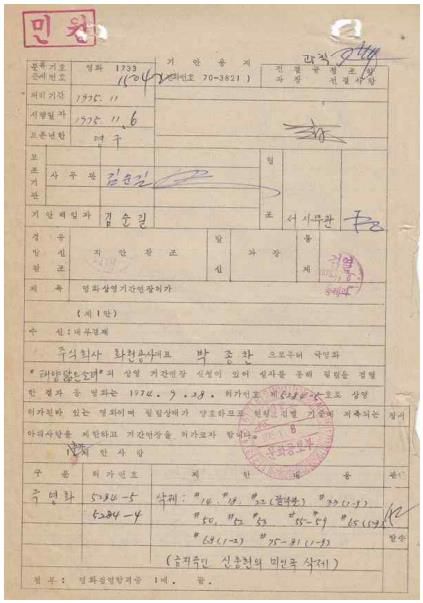 민원
기안용지
분류기호 영화 1733
문서번호
(전화번호 70-3821)
전결규정 조 항
과장 전결사항
처리기간 1975. 11
시행일자 1975. 11. 6
보존년한 영구
보조기관
사무관 김순길
협조
서사무관
기안책임자 김순길
경유
발신
참조
과장
통제
제목 영화상영기간연장허가
(제1안)
수신: 내부결재
주식회사 화천공사대표 박종찬 으로부터 극영화
"태양닮은소녀"의 상영 기간연장 신청이 있어 심사를 통해 필림을 검열
한 결과 동 영화는 1974. 9. 28. 허가번호 제5284-5호로 상영
허가된바 있는 영화이며 필림상태가 양호하므로 현행 검열 기준에 저촉되는
아래사항을 제한하고 기간연장을 허가코자 합니다.
제한사항
구분 허가번호 제한내용
주영화 5284-5 삭제: #14, #18, #22 #33(1-9)
5284-4 #50, #52 #53 #55-#59 #65
#69(1-2) #75-81(1-9)
삭제)
첨부: 영화검열합격증 1매. 끝.